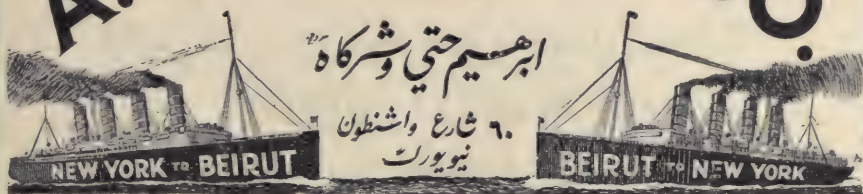 ابرهيم حتي وشركاه
٦٠ شارع واشنطون
نيويورك
NEW YORK TO BEIRUT
BEIRUT TO NEW YORK